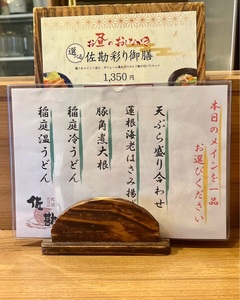 お昼のおしながき
選べる
佐勘彩り御膳
1,350円
本日のメインを一品
お選びください
天ぷら盛り合わせ
蓮根海老はさみ揚
豚角煮大根
稲庭冷うどん
稲庭温うどん
佐勘